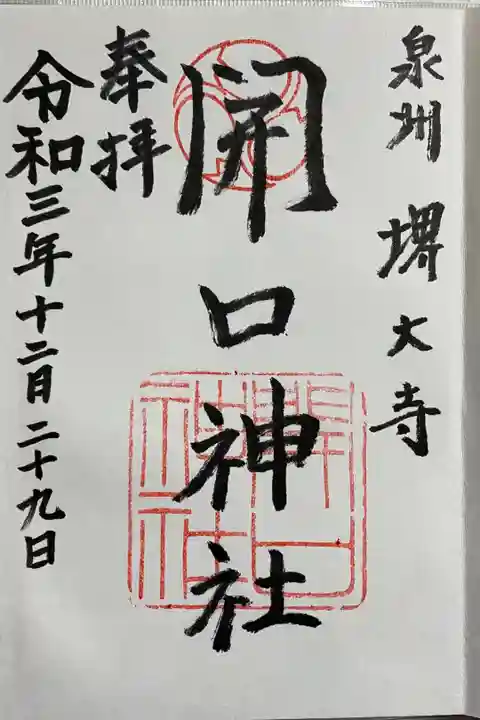 泉州 堺大寺
開口神社
奉拝
令和三年十二月二十九日
開口神社